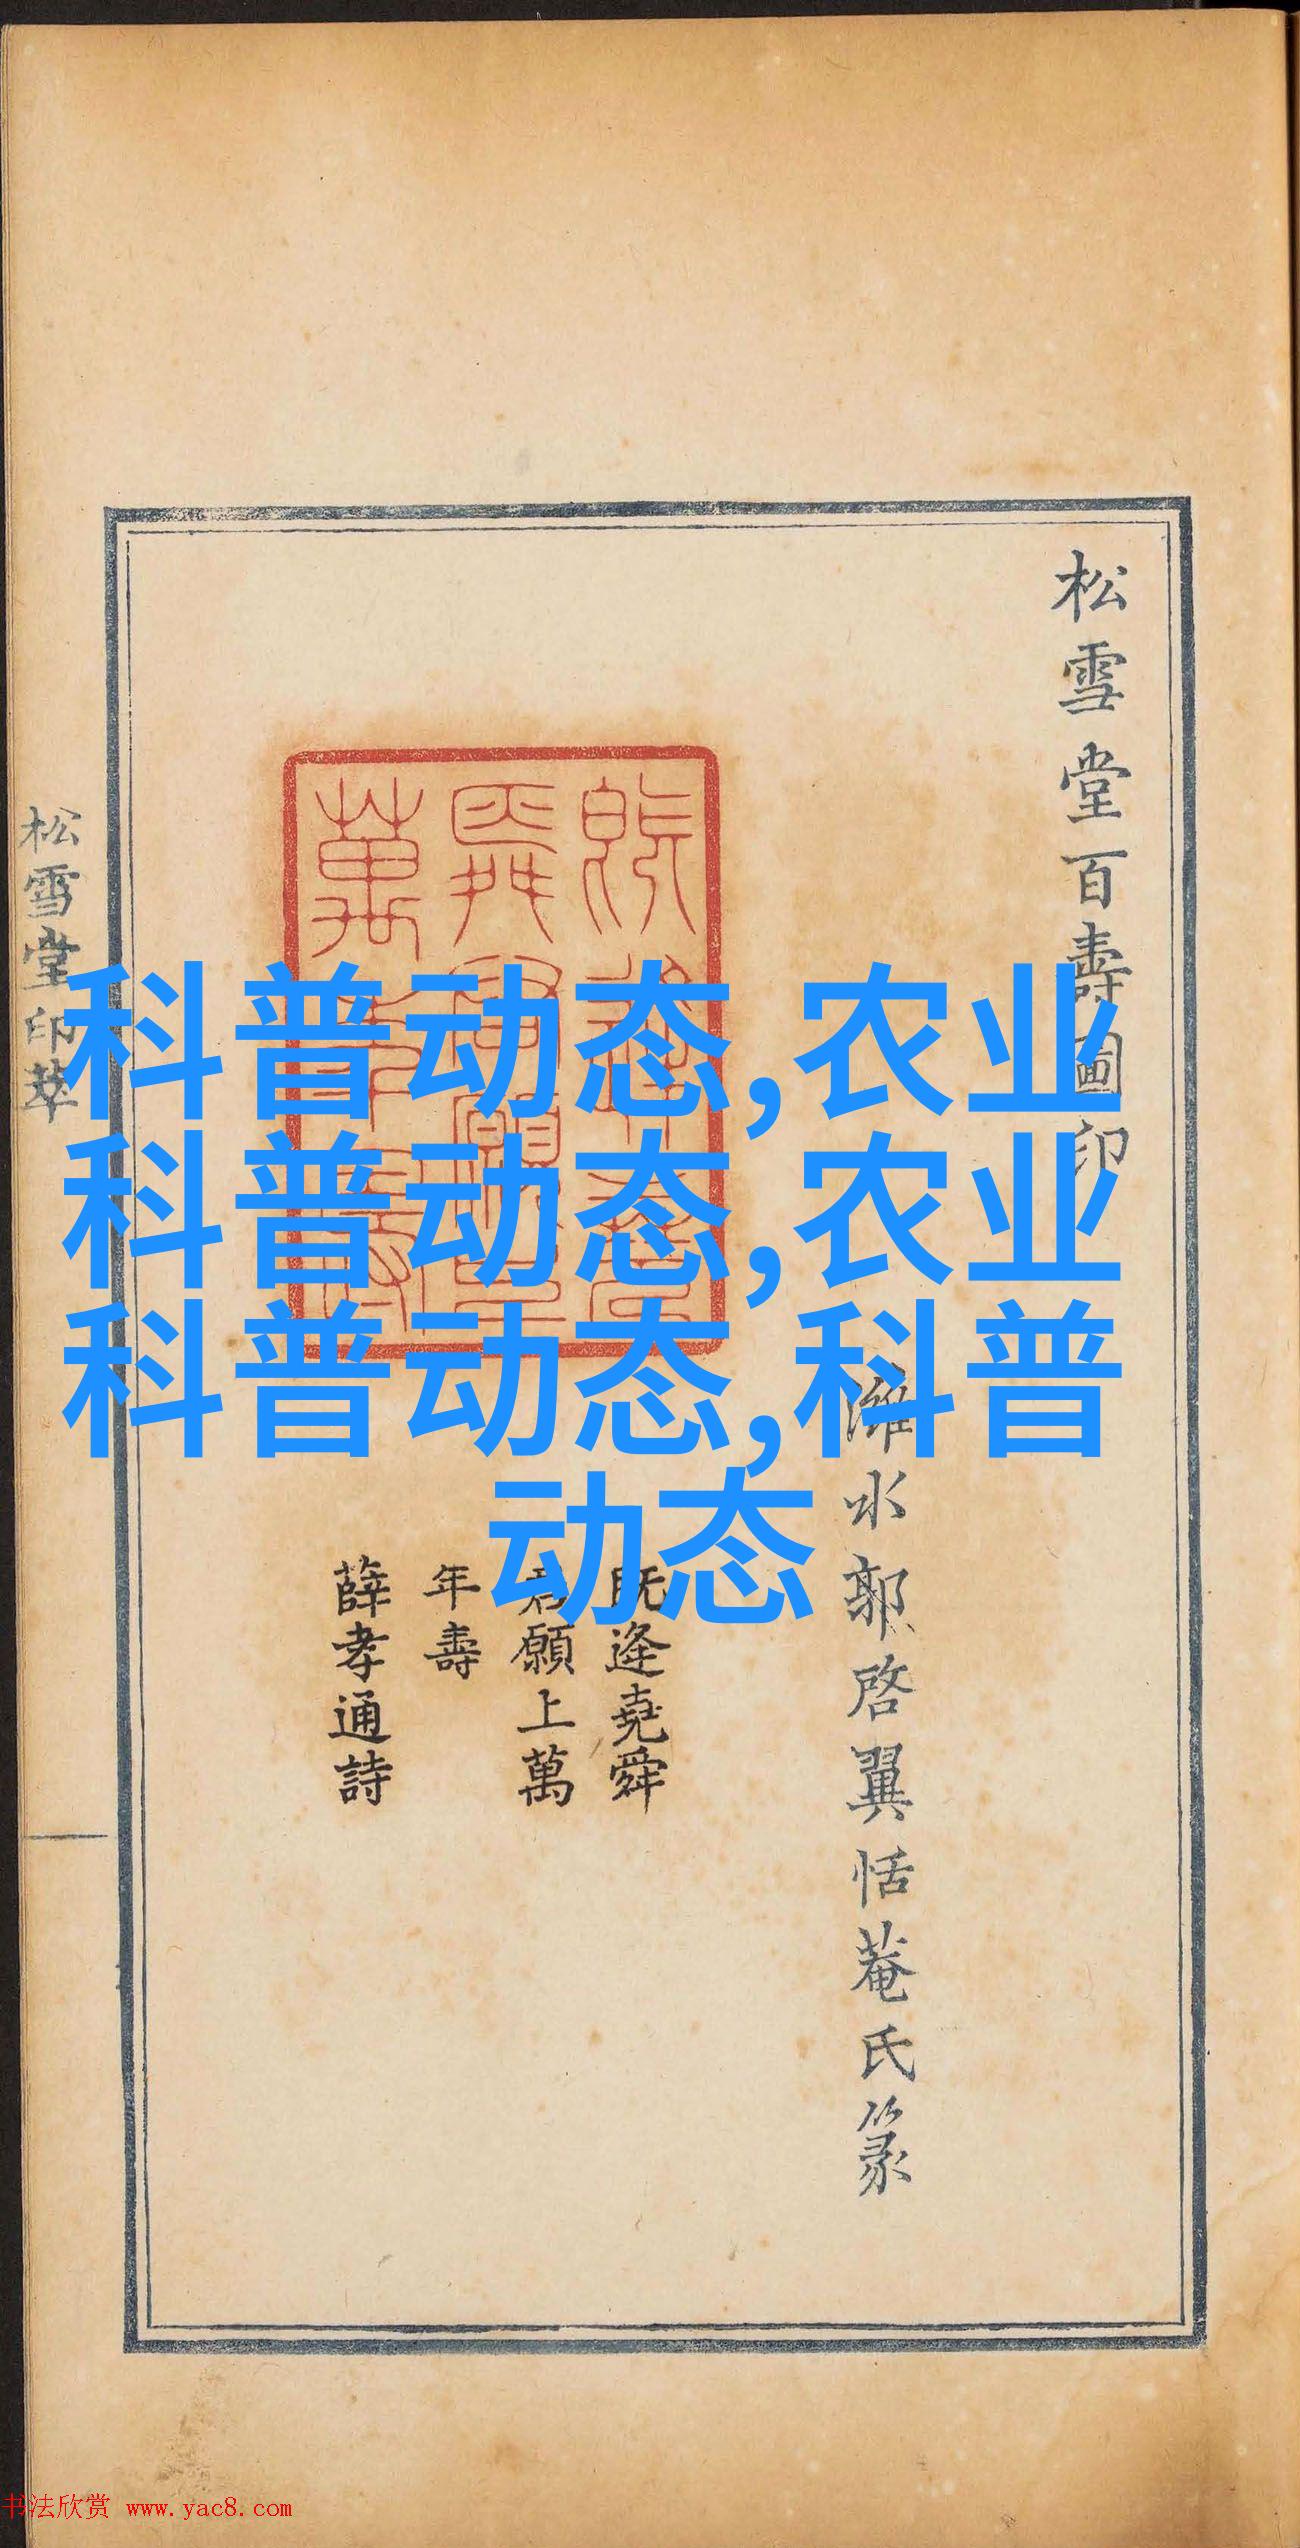 松雪堂百壽圖印
濰水郭啓翼恬菴氏篆
既逢堯舜
君願上萬
年壽
薛孝通詩
松雪堂印萃
科普动态,农业
科普动态,农业
科普动态,科普
动态
书法欣赏 www.yac8.com